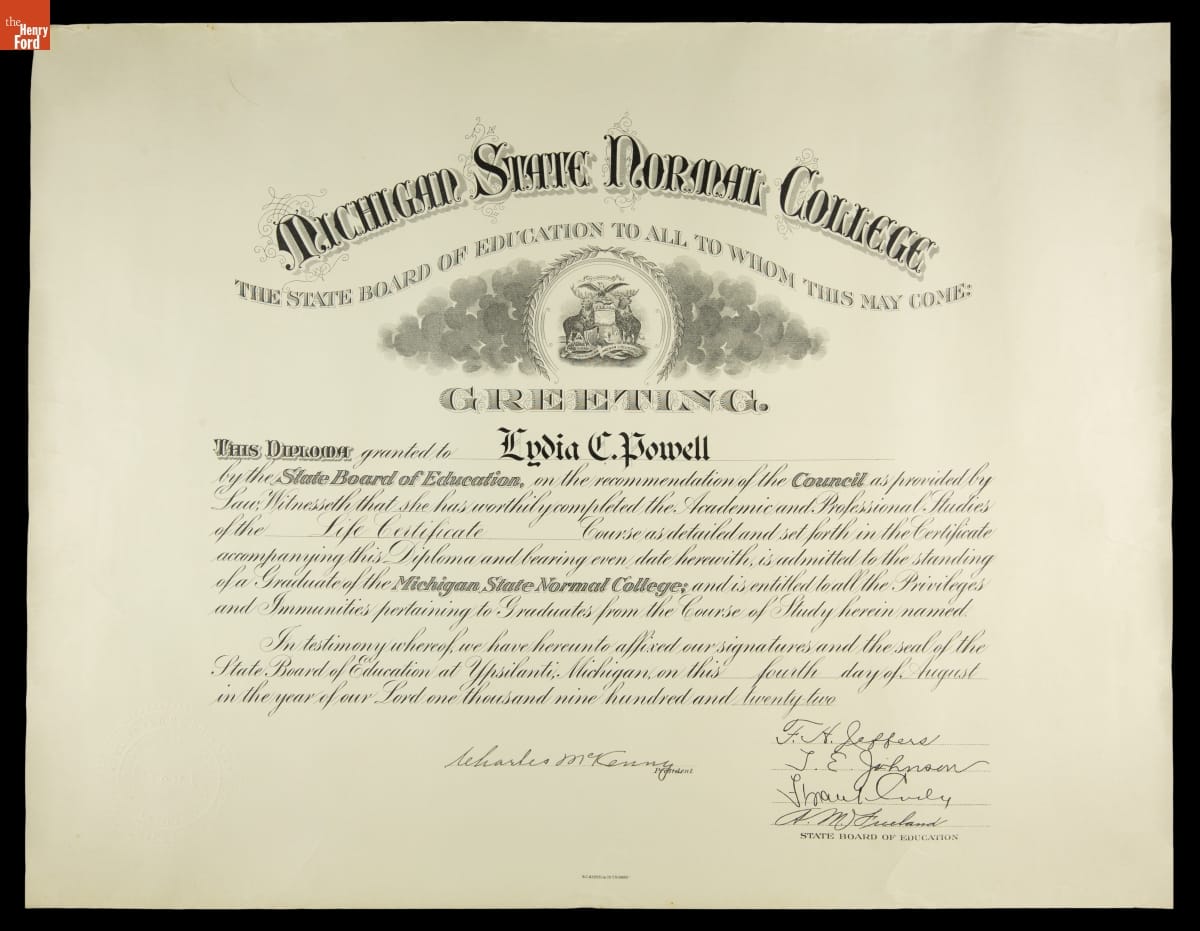 the
Henry
Ford
MICHIGAN STATE NORMAL COLLEGE
THE STATE BOARD OF EDUCATION TO ALL TO WHOM THIS MAY COME:
GREETING.
THIS DIPLOMA granted to Lydia C. Powell
by the State Board of Education, on the recommendation of the Council as provided by
Law, Witnesseth that she has worthily completed the Academic and Professional Studies
of the Life Certificate Course as detailed and set forth in the Certificate
accompanying this Diploma and bearing even date herewith, is admitted to the standing
of a Graduate of the Michigan State Normal College; and is entitled to all the Privileges
and Immunities pertaining to Graduates from the Course of Study herein named.
In testimony whereof, we have hereunto affixed our signatures and the seal of the
State Board of Education at Ypsilanti, Michigan, on this fourth day of August
in the year of our Lord one thousand nine hundred and twenty two
F. H. Jeffers
Charles McKenny
President
T. E. Johnson
Frank Cody
A. M. Freeland
STATE BOARD OF EDUCATION